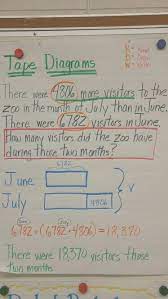 Tape Diagrams
There were 4806 more visitors to the
zoo in the month of July than in June.
There were 6782 visitors in June.
How many visitors did the zoo have
during those two months?
6782
June
July
4806
V
June July
6782 + (6782 + 4806) = 18,370
There were 18,370 visitors those
two months